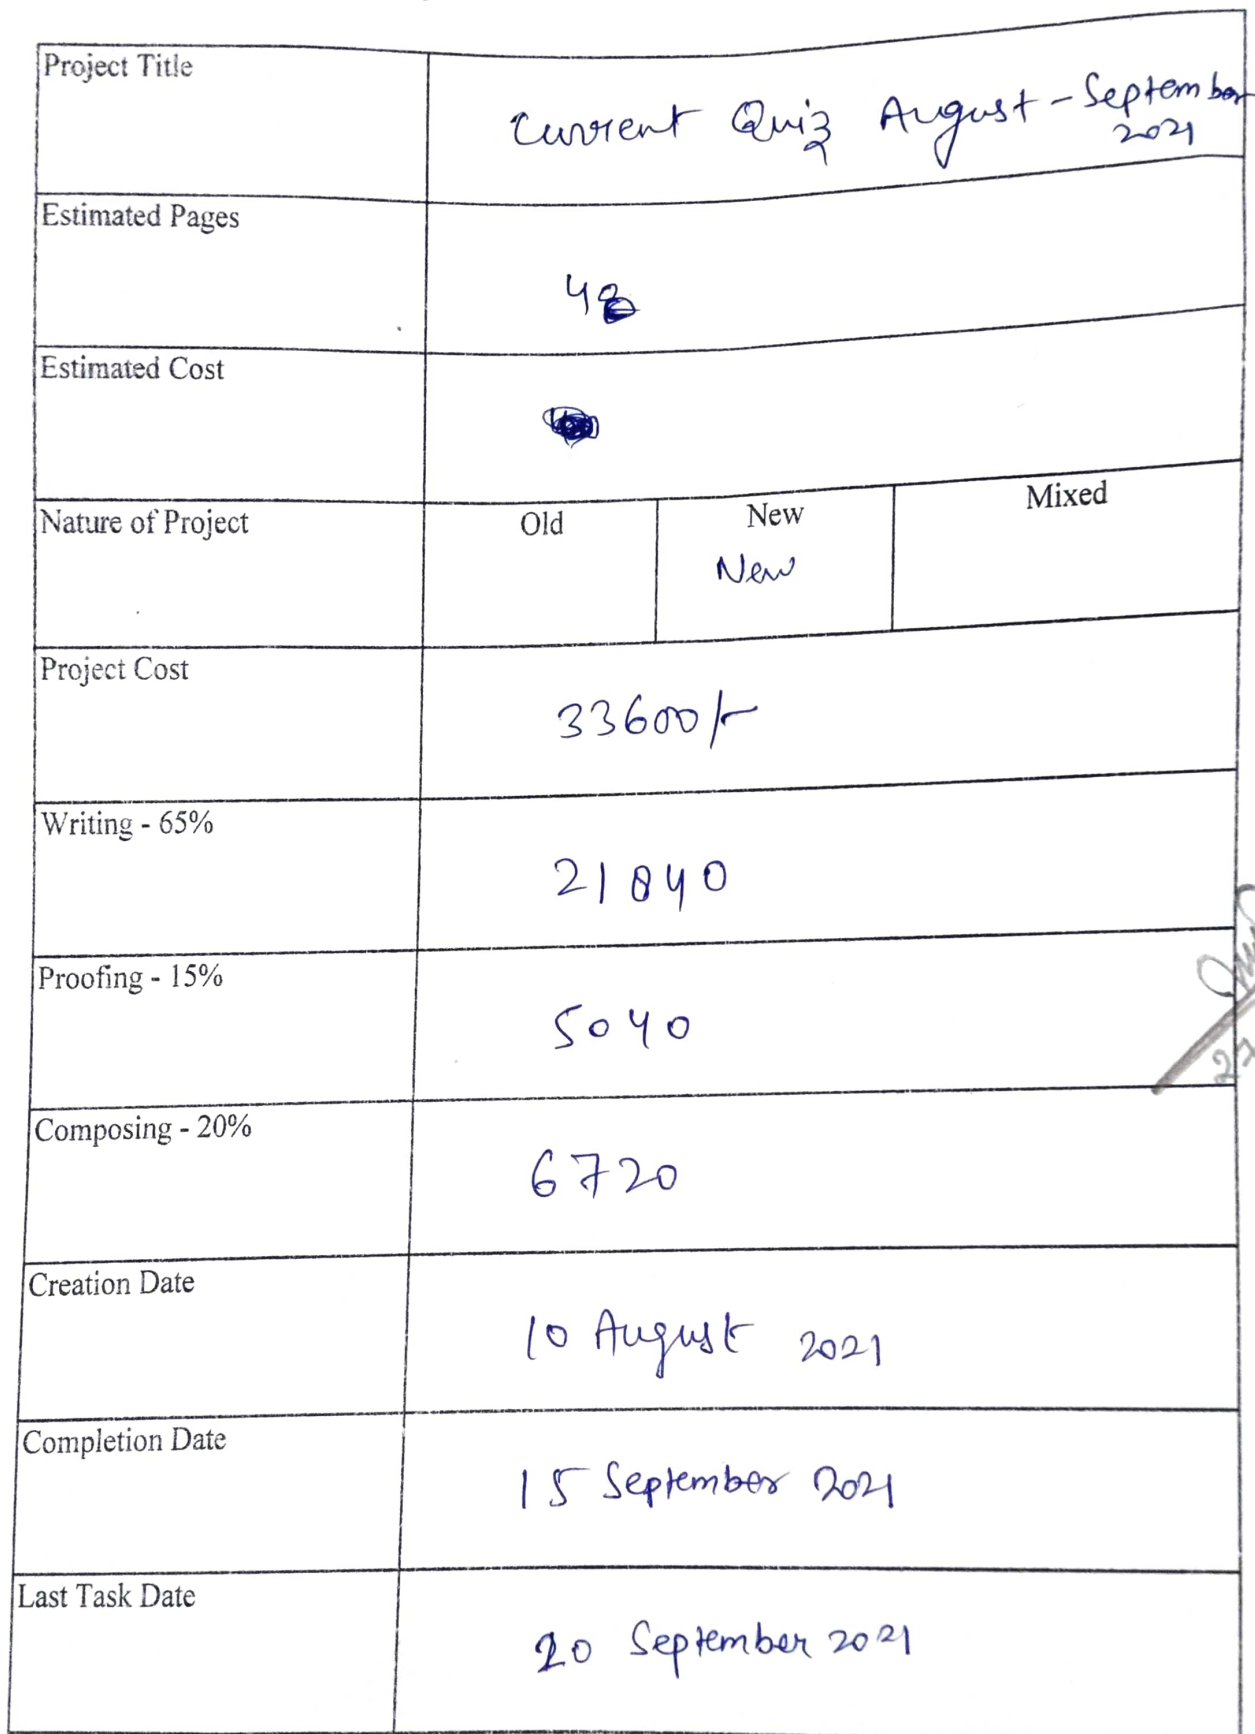 Project Title
Current Quiz August - September
2021
Estimated Pages
48
Estimated Cost
Nature of Project
Old
New
Mixed
New
Project Cost
33600/-
Writing - 65%
21840
Proofing - 15%
5040
Composing - 20%
6720
Creation Date
10 August 2021
Completion Date
15 September 2021
Last Task Date
20 September 2021